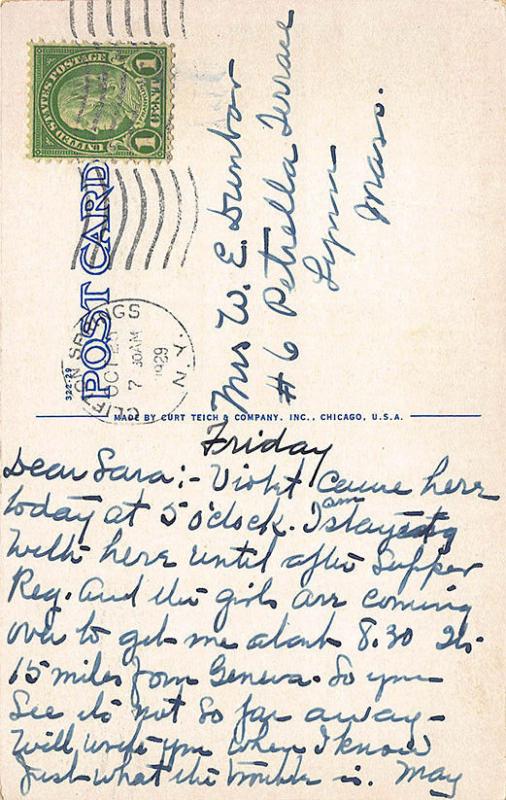 UNITED STATES POSTAGE
1 CENT 1
POST CARD
322-29
CLIFTON SPRINGS
OCT 26
7 30AM
1929
N.Y.
Mrs W. E. Dunbar
#6 Petrella Terrace
Lynn
Mass.
MADE BY CURT TEICH & COMPANY. INC., CHICAGO, U.S.A.
Friday
Dear Sara:- Violet came here
today at 5 o'clock. I am staying
with here until after supper
Reg. And the girls are coming
over to get me about 8.30 Its
15 miles from Geneva. So you
see its not so far away-
Will write you when I know
just what the trouble is. May